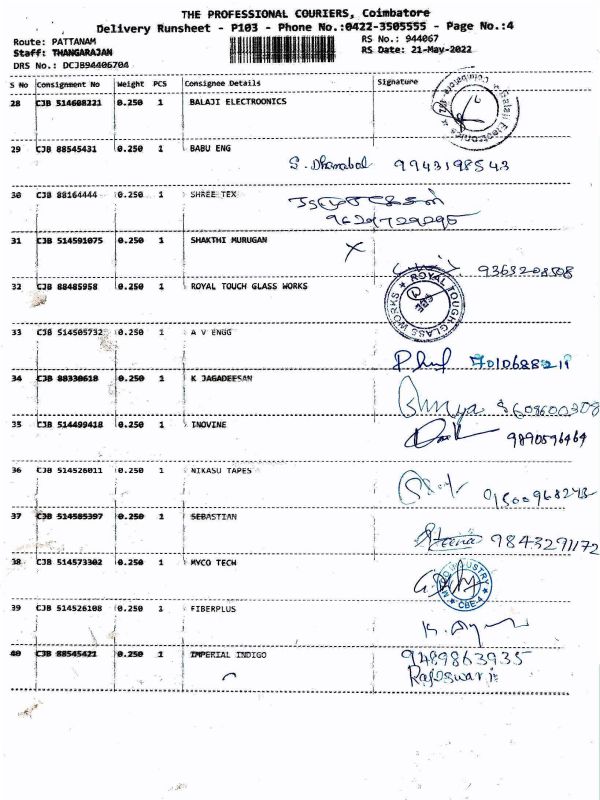 THE PROFESSIONAL COURIERS, Coimbatore
Delivery Runsheet - P103 - Phone No.:0422-3505555 - Page No.:4
Route: PATTANAM RS No.: 944067
Staff: THANGARAJAN RS Date: 21-May-2022
DRS No.: DCJB94406704
S No Consignment No Weight PCS Consignee Details Signature
28 CJB 514608221 0.250 1 BALAJI ELECTROONICS
29 CJB 88545431 0.250 1 BABU ENG
S. Dhanabal 9943198543
30 CJB 88164444 0.250 1 SHREE TEX
9629729095
31 CJB 514591075 0.250 1 SHAKTHI MURUGAN
9363208508
32 CJB 88485958 0.250 1 ROYAL TOUCH GLASS WORKS
ROYAL TOUGH GLASS WORKS CBE
33 CJB 514505732 0.250 1 A V ENGG
7010688211
34 CJB 88330618 0.250 1 K JAGADEESAN
35 CJB 514499418 0.250 1 INOVINE
9890596464
36 CJB 514526011 0.250 1 NIKASU TAPES
9500968243
37 CJB 514585397 0.250 1 SEBASTIAN
Steena 9843291172
38 CJB 514573302 0.250 1 MYCO TECH
INDUSTRY CBE-4
39 CJB 514526108 0.250 1 FIBERPLUS
40 CJB 88545421 0.250 1 IMPERIAL INDIGO
9489863935
Rajeswari